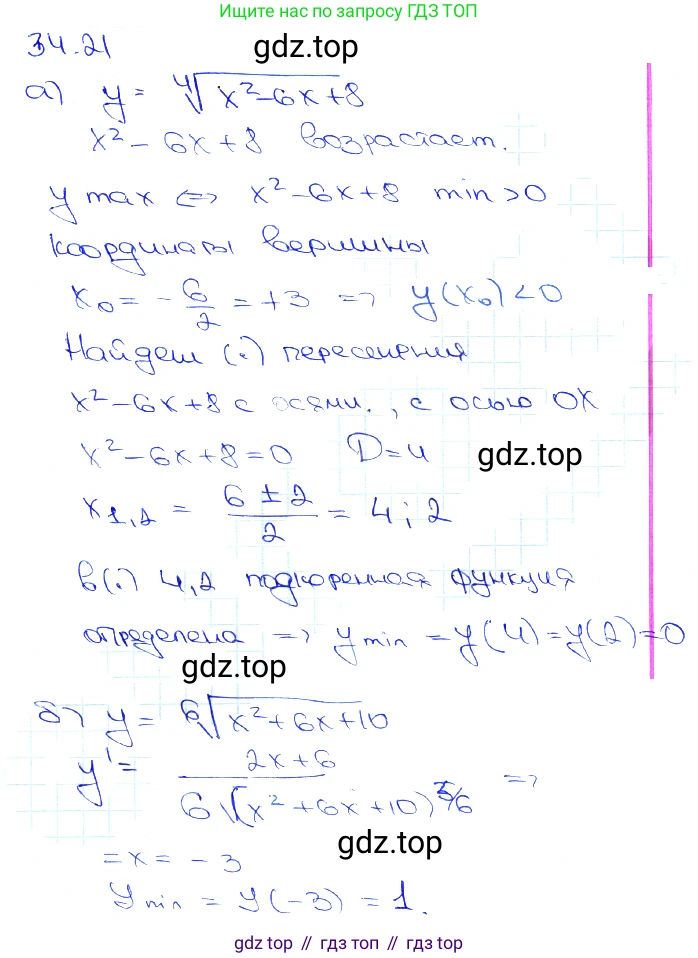 Ищите нас по запросу ГДЗ ТОП
34.21
gdz.top
а) y = ⁴√x²-6x+8
x² - 6x + 8 возрастает.
y max <=> x²-6x+8 min >0
Координаты вершины
x₀ = - 6/2 = +3 => y(x₀) < 0
Найдем (.) пересечения
x²-6x+8 с осями., с осью OX
x²-6x+8=0 D=4
gdz.top
x₁,₂ = (6 ± 2)/2 = 4; 2
в (.) 4,2 подкоренная функция
определена => y min = y(4) = y(2) = 0
gdz.top
б) y = ⁶√x²+6x+10
y' = (2x+6)/(6(x²+6x+10)^5/6) =>
gdz.top
= x = - 3
y min = y(-3) = 1.
gdz.top // гдз топ // гдз.top